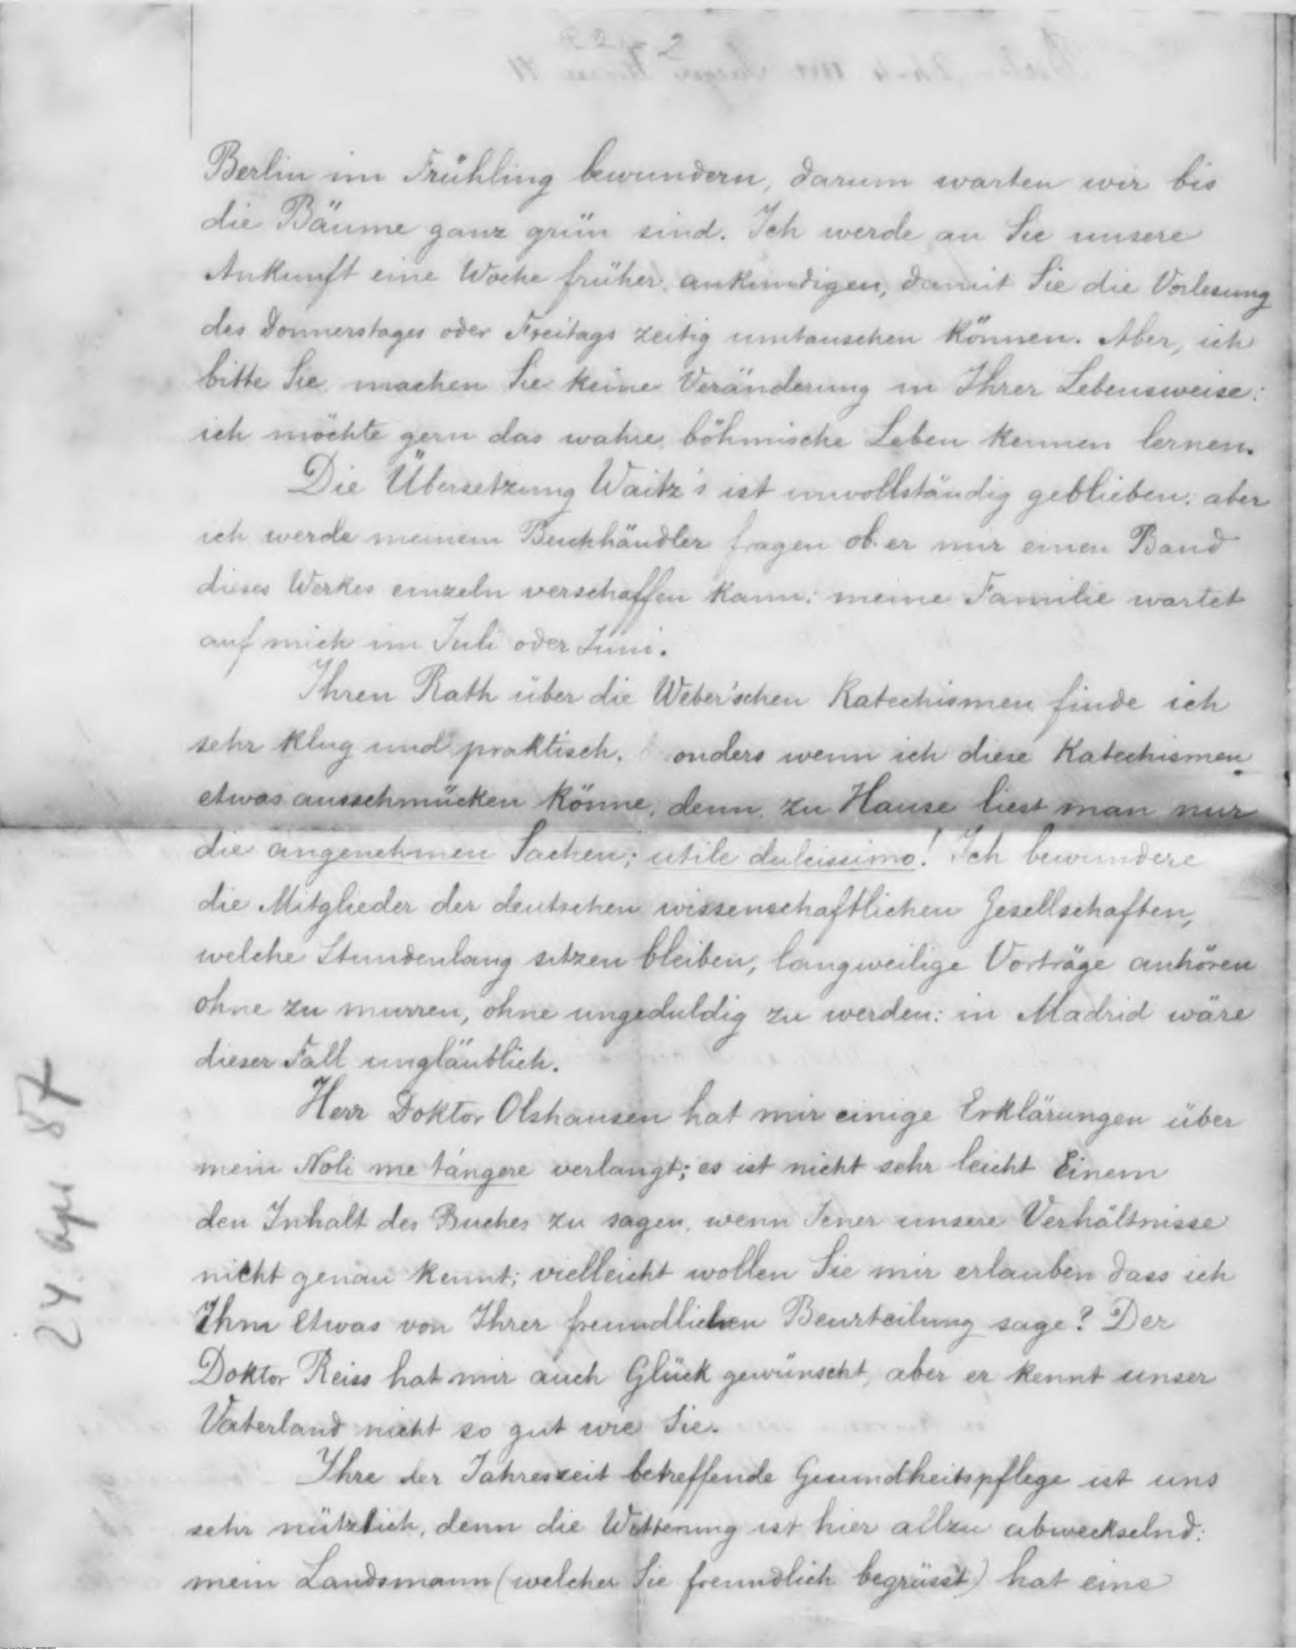 Berlin im Frühling bewundern, darum warten wir bis
die Bäume ganz grün sind. Ich werde an Sie unsere
Ankunft eine Woche früher ankundigen, damit Sie die Vorlesung
des Donnerstages oder Freitags zeitig umtauschen können. Aber, ich
bitte Sie machen Sie keine Veränderung in Ihrer Lebensweise:
ich möchte gern das wahre böhmische Leben kennen lernen.
Die Übersetzung Waitz's ist unvollständig geblieben: aber
ich werde meinem Buchhändler fragen ob er nur einen Band
dieses Werkes einzeln verschaffen kann: meine Familie wartet
auf mich im Juli oder Juni.
Ihren Rath über die Weber'schen Katechismen finde ich
sehr klug und praktisch. onders wenn ich diese Katechismen
etwas ausschmücken könne, denn zu Hause liest man nur
die angenehmen Sachen; utile dulcissimo! Ich bewundere
die Mitglieder der deutschen wissenschaftlichen Gesellschaften,
welche Stundenlang sitzen bleiben, langweilige Vorträge anhören
ohne zu murren, ohne ungeduldig zu werden: in Madrid wäre
dieser Fall ungläublich.
Herr Doktor Olshausen hat mir einige Erklärungen über
mein Noli me tángere verlangt; es ist nicht sehr leicht Einem
den Inhalt des Buches zu sagen, wenn Jener unsere Verhältnisse
nicht genau kennt; vielleicht wollen Sie mir erlauben dass ich
Ihm etwas von Ihrer freundlichen Beurteilung sage? Der
Doktor Reiss hat mir auch Glück gewünscht, aber er kennt unser
Vaterland nicht so gut wie Sie.
Ihre der Jahreszeit betreffende Gesundheitspflege ist uns
sehr nützlich, denn die Witterung ist hier allzu abwechselnd:
mein Landsmann (welcher Sie freundlich begrüsst) hat eine
24 87